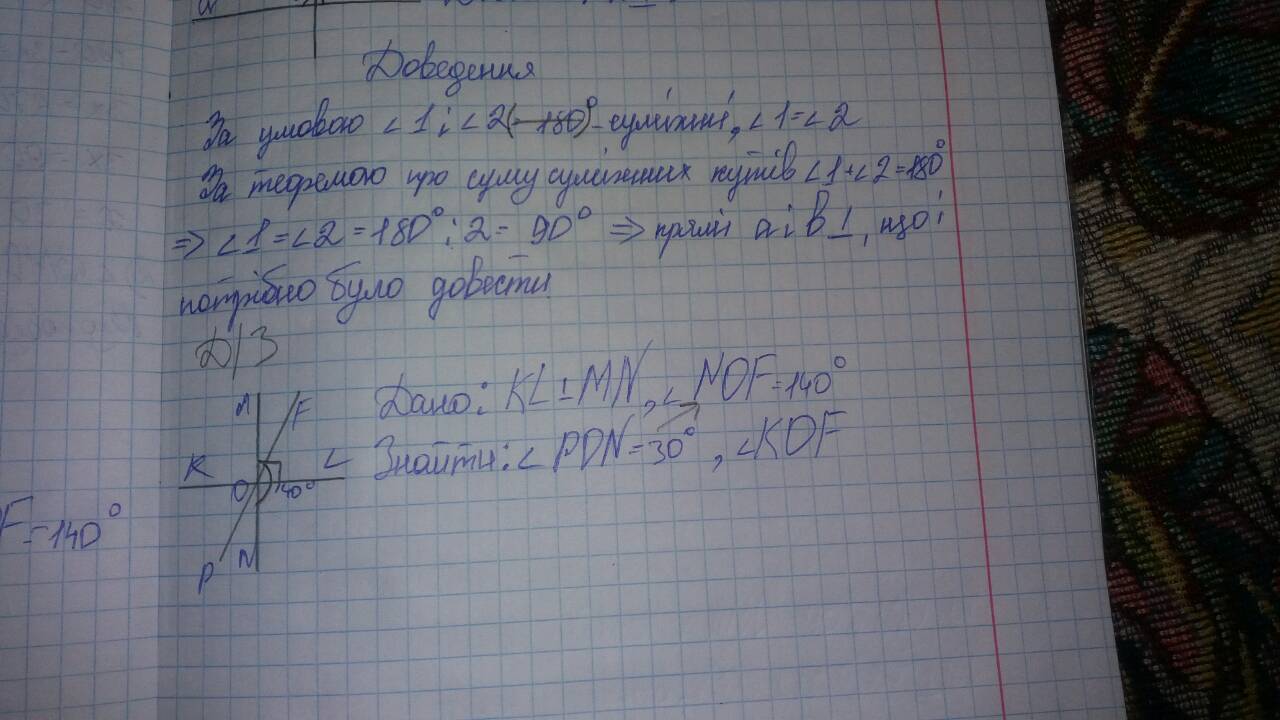 Доведення
За умовою ∠1 і ∠2 (180°) - суміжні, ∠1=∠2
За теоремою про суму суміжних кутів ∠1+∠2=180°
=> ∠1=∠2=180°:2= 90° => прямі a і b ⊥, що і
потрібно було довести
Д/З
Дано: KL⊥MN, ∠NOF=140°
Знайти: ∠PON=30°, ∠KOF
M F
K L
O 140°
P N
F=140°